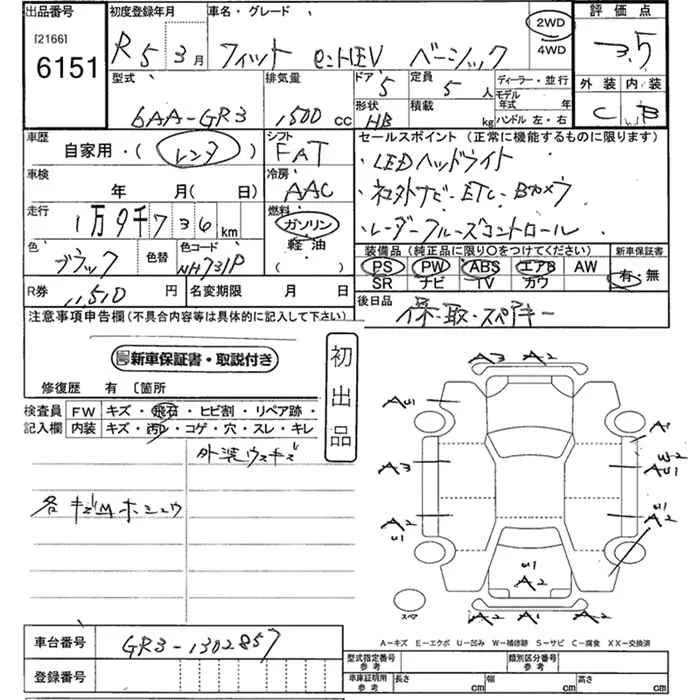 出品番号 初度登録年月 車名・グレード 評価点
[2166]
6151 R5 3月 フィット e:HEV ベーシック 2WD 4WD 3.5
型式 排気量 ドア 5 定員 5人 ディーラー・並行 外装 内装
6AA-GR3 1,500 cc 形状 HB 積載 kg モデル年式 年 ハンドル 左・右 C B
車歴 シフト セールスポイント(正常に機能するものに限ります)
自家用・(レンタ) FAT ・LEDヘッドライト
車検 冷房
年 月(日) AAC ・ネ外ナビ・ETC・Bカメラ
走行 燃料
1万9千736km ガソリン ・レーダークルーズコントロール
軽油
( )
色 色替 色コード 装備品(純正品に限り○をつけてください) 新車保証書
ブラック NH731P PS PW ABS エアB AW 有・無
SR ナビ TV カワ
R券 11,510 円 名変期限 月 日 後日品
保・取・スペアキー
注意事項申告欄(不具合内容等は具体的に記入して下さい)
新車保証書・取説付き
初出品
修復歴 有 〔箇所
検査員 FW キズ・飛石・ヒビ割・リペア跡・
記入欄 内装 キズ・汚レ・コゲ・穴・スレ・キレ
外装ウスキズ
各キズMホシュウ
A3 A2
AU1 A1
A3 W2
AU1
A2 U1 U1 A2
U1
A2
スペア A2 A1 A2
A-キズ E-エクボ U-凹み W-補修跡 S-サビ C-腐食 XX-交換済
車台番号 GR3-1302857
型式指定番号 参考 類別区分番号 参考
登録番号 車庫証明用 参考 長さ cm 幅 cm 高さ cm